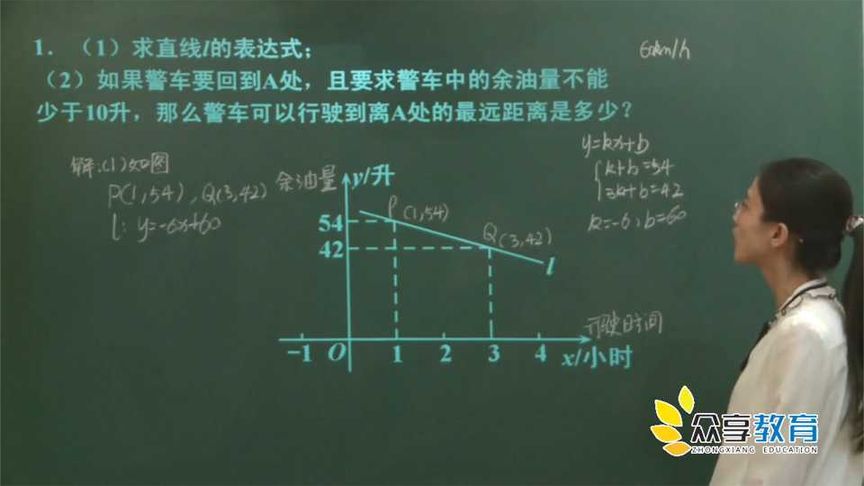 1. （1）求直线l的表达式；
（2）如果警车要回到A处，且要求警车中的余油量不能
少于10升，那么警车可以行驶到离A处的最远距离是多少？
60km/h
解:(1)如图
P(1,54), Q(3,42)
l: y=-6x+60
y=kx+b
k+b=54
3k+b=42
k=-6, b=60
余油量
y/升
P (1,54)
54
Q (3,42)
42
l
行驶时间
-1 O 1 2 3 4 x/小时
众享教育
ZHONGXIANG EDUCATION